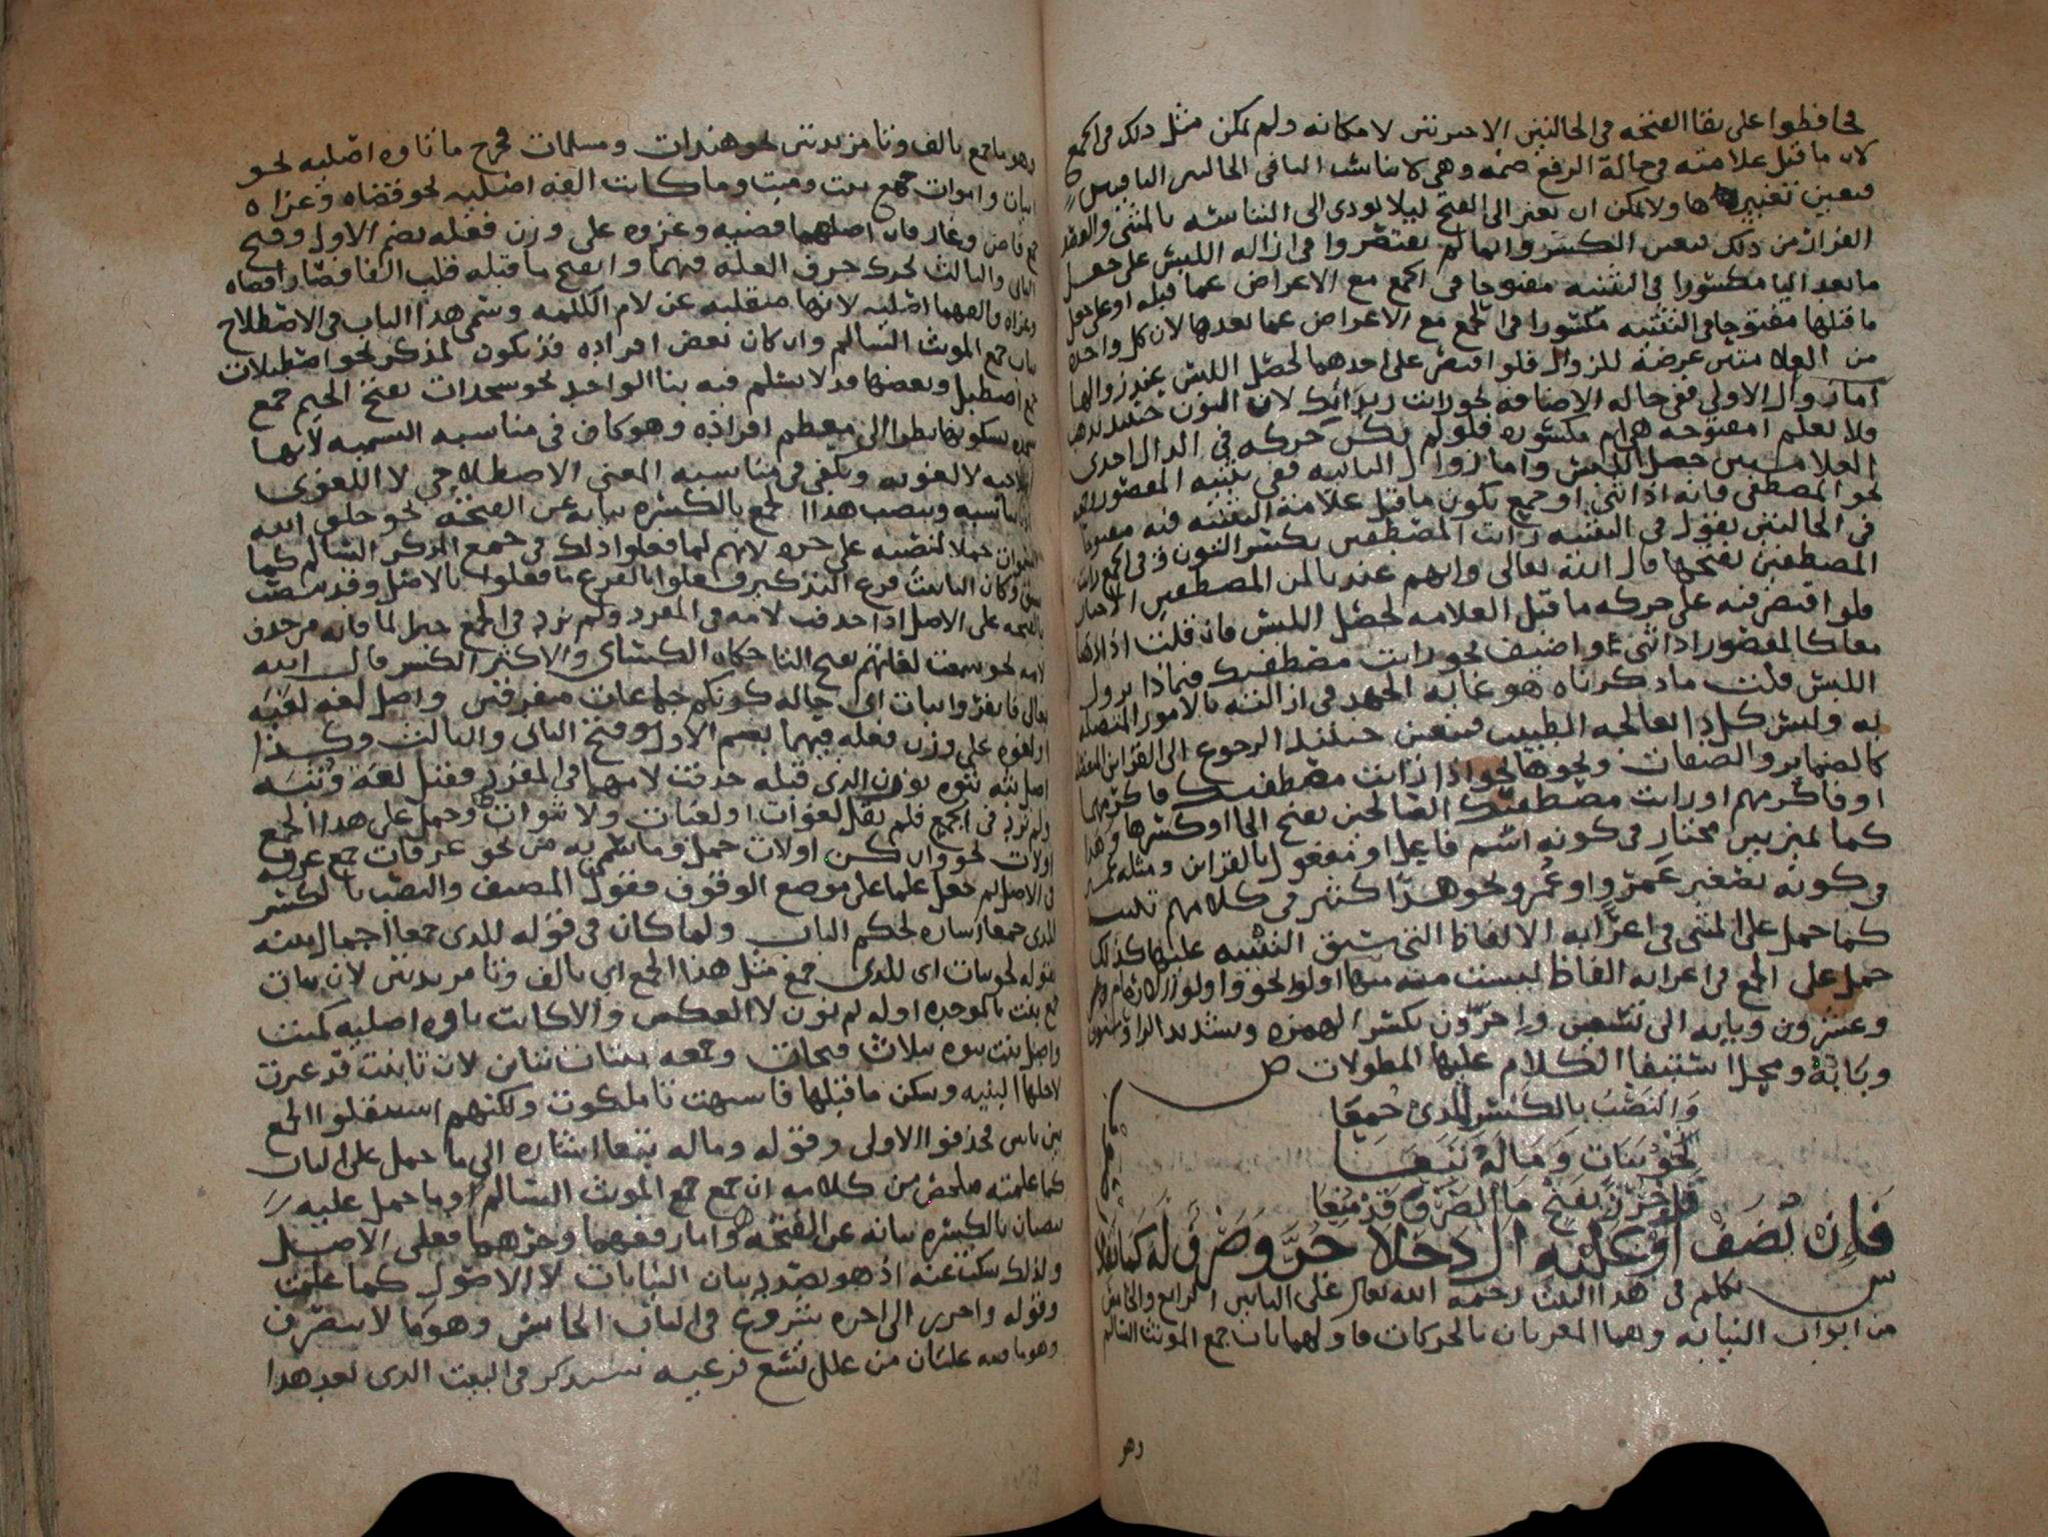 فحافظوا على بقا الفتحه في الحالتين الاخيرتين لامكانه ولم يمكن مثل ذلك في الجمع
لان ما قبل علامته في حالة الرفع ضمه وهي لا تناسب اليا في الحالين الباقيين
فتعين تغييرها ولا يمكن ان تغير الى الفتح ليلا يودى الى التباسه بالمثنى والعقد
الفرار من ذلك فتعين الكسر وانما لم يقتصروا في ازاله اللبس على جعل
ما بعد اليا مكسورا في التثنيه مفتوحا في الجمع مع الاعراض عما قبله او على جعل
ما قبلها مفتوحا في التثنيه مكسورا في الجمع مع الاعراض عما بعدها لان كل واحده
من العلامتين عرضة للزوال فلو اقتصر على احدهما لحصل اللبس عند زوالها
اما زوال الاولى ففي حاله الاضافه نحو رايت زيدائك لان النون حينيذ تذهب
فلا يعلم امفتوحه هي ام مكسوره فلو لم يكن حركه في الدال احدى
العلامتين حصل اللبس واما زوال الثانيه ففي تثنيه المقصور
نحو المصطفى فانه اذا ثنى او جمع يكون ما قبل علامة التثنيه فيه مفتوحا
في الحالتين تقول في التثنيه رايت المصطفين بكسر النون وفي الجمع رايت
المصطفين بفتحها قال الله تعالى وانهم عندنا لمن المصطفين الاخيار
فلو اقتصر فيه على حركه ما قبل العلامه لحصل اللبس فان قلت اذا
معا كالمقصور اذا ثنى واضيف نحو رايت مصطفيك فبماذا يزول
اللبس قلت ما ذكرناه هو غايه الجهد في ازالته بالامور المتصله
به وليس كل دا يعالجه الطبيب فيتعين حينيذ الرجوع الى القراين المنفصله
كالضماير والصفات ونحوها نحو اذا رايت مصطفيك فاكرمهما
او فاكرمهم او رايت مصطفيك الصالحين بفتح الحا او كسرها وهذا
كما تميز بين مختار في كونه اسم فاعل او مفعول بالقراين ومثله
في كونه تصغير عمرو او عمر ونحو هذا كثير في كلامهم
كما حمل على المثنى في اعرابه الالفاظ التي سبق التنبيه عليها كذلك
حمل على الجمع في اعرابه الفاظ ليست منه منها اولو نحو واولوا الارحام
وعشرون وبابه الى تسعين واحرّون بكسر الهمزه وتشديد الرا
وبابه ومحل استيفا الكلام عليها المطولات ص
وَالنَصْبُ بالكَسْرِ لِلَذى جُمِعَا
نحوُ بَنَاتٍ وَمَا لَهُ تَبِعَا
وَاجْرُرْ بفَتحٍ مَا لصَرْفٍ قَدْ مُنِعَا
فَإِن تُضَفْ أو تلته ال دخلا جُرَّ وصرف لَهُ
س تكلم في هذا البيت رحمه الله تعالى على البابين الرابع والخامس
من ابواب النيابه وهما المعربان بالحركات فاولهما باب جمع المونث السالم
وهو
وهو ما جمع بالف وتا مزيدتين نحو هندات ومسلمات فخرج ما تاوه اصليه نحو
ابيات واموات جمع بيت وميت وما كانت الفه اصليه نحو قضاه وغزاه
جمع قاض وغاز فان اصلهما قضيه وغزوه على وزن فعله بضم الاول وفتح
الثانى والثالث تحرك حرف العله فيهما وانفتح ما قبله قلب الفا فصارا قضاه
وغزاه فالفهما اصليه لانها منقلبه عن لام الكلمه وسمى هذا الباب في الاصطلاح
باب جمع المونث السالم وان كان بعض افراده قد يكون لمذكر نحو اصطبلات
جمع اصطبل وبعضها قد لا يسلم فيه بنا الواحد نحو سجدات بفتح الجيم جمع
سجده بسكونها نظرا الى معظم افراده وهو كاف في مناسبه التسميه لانها
لا لغويه ويكفي في مناسبه المعنى الاصطلاحي لا اللغوى
وينصب هذا الجمع بالكسره نيابه عن الفتحه نحو خلق الله
السموات حملا لنصبه على جره لانهم لما فعلوا ذلك في جمع المذكر السالم كما
سبق وكان التانيث فرع التذكير فعلوا بالفرع ما فعلوا بالاصل وقد ينصب
بالفتحه على الاصل اذا حذفت لامه في المفرد ولم ترد في الجمع جبرا لما فاته من حذف
لامه نحو سمعت لغاتهم بفتح التا حكاه الكسائى والاكثر الكسر قال الله
تعالى فانفروا ثبات اى حاله كونكم جماعات متفرقين واصل لغه لغيه
او لغوه على وزن فعله فيهما بضم الاول وفتح الثانى والثالث وكذا
اصل ثبه ثبوه بوزن الذى قبله حذفت لامهما في المفرد فقيل لغه وثبه
ولم ترد في الجمع فلم يقل لغوات او لغيات ولا ثبوات وحمل على هذا الجمع
اولات نحو وان كن اولات حمل وما سمى به من نحو عرفات جمع عرفه
في الاصل ثم جعل علما على موضع الوقوف فقول المصنف والنصب بالكسر
للذى جمعا اشاره لحكم الباب ولما كان في قوله للذى جمعا اجمال بينه
بقوله نحو بنات اى للذى جمع مثل هذا الجمع اي بالف وتا مزيدتين لان بنات
جمع بنت بالموحده اوله ثم نون لا العكس والا كانت تاوه اصليه كميت
واصل بنت بنوه بثلاث فتحات وجمعه بنات لان تا بنت قد غيرت
لاجلها البنيه وسكن ما قبلها فاشبهت تا ملكوت ولكنهم استثقلوا الجمع
بين تاين فحذفوا الاولى وقوله وما له تبعا اشاره الى ما حمل على الباب
كما علمته ملخص من كلامه ان جمع جمع المونث السالم وما حمل عليه
ينصبان بالكسره نيابه عن الفتحه واما رفعهما وجرهما فعلى الاصل
ولذلك سكت عنه اذ هو بصدد بيان النيابات لا الاصول كما علمت
وقوله واجرر الى اخره شروع في الباب الخامس وهو ما لا ينصرف
وهو ما فيه علتان من علل تسع فرعيه ستذكر في البيت الذى بعد هذا